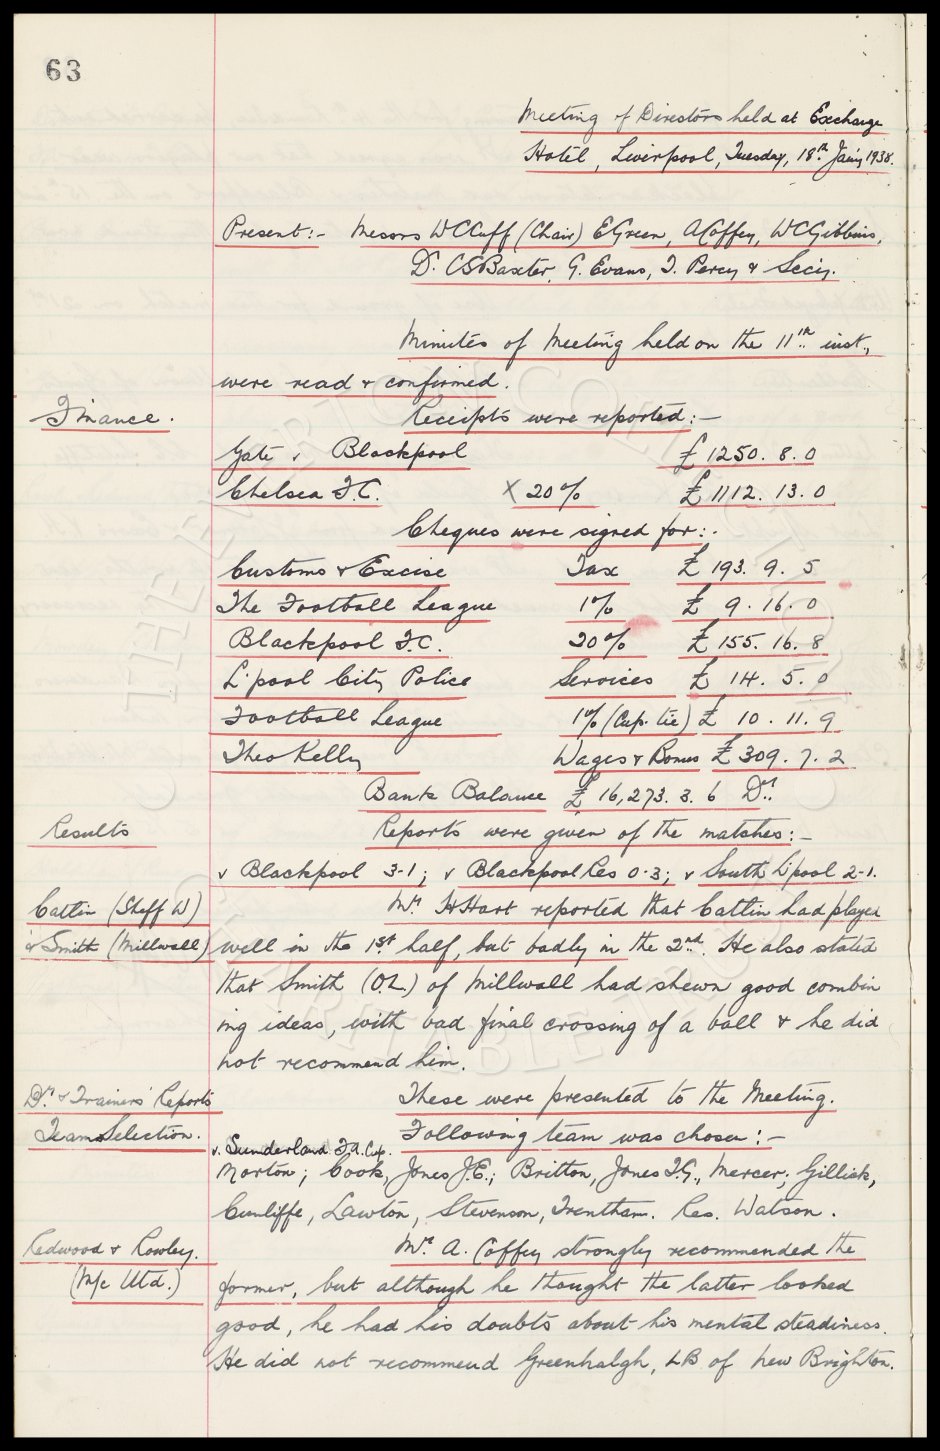 63
Meeting of Directors held at Exchange
Hotel, Liverpool, Tuesday, 18th Jan'y 1938.
Present:- Messrs WCCuff (Chair) EGreen, ACoffey, WCGibbins,
Dr. CSBaxter, G. Evans, T. Percy & Sec'y.
Minutes of Meeting held on the 11th inst.,
were read & confirmed.
Finance. Receipts were reported:-
Gate v Blackpool £1250. 8. 0
Chelsea F.C. X 20% £1112. 13. 0
Cheques were signed for:-
Customs & Excise Tax £193. 9. 5
The Football League 1% £ 9. 16. 0
Blackpool F.C. 20% £155. 16. 8
L'pool City Police Services £ 14. 5. 0
Football League 1% (Cup-tie) £ 10. 11. 9
Theo Kelly Wages & Bonus £309. 7. 2
Bank Balance £16,273. 3. 6 Dr.
Results Reports were given of the matches:-
v Blackpool 3-1; v Blackpool Res 0-3; v South L'pool 2-1.
Catlin (Sheff W) Mr. H Hart reported that Catlin had played
& Smith (Millwall) well in the 1st half, but badly in the 2nd. He also stated
that Smith (O.L.) of Millwall had shewn good combin
ing ideas, with bad final crossing of a ball & he did
not recommend him.
Dr. & Trainers' Reports These were presented to the Meeting.
Team Selection. Following team was chosen:-
v. Sunderland F.A. Cup.
Morton; Cook, Jones J.E.; Britton, Jones T.G., Mercer; Gillick,
Cunliffe, Lawton, Stevenson, Trentham. Res. Watson.
Redwood & Rowley. Mr. A. Coffey strongly recommended the
(M/c Utd.) former, but although he thought the latter looked
good, he had his doubts about his mental steadiness.
He did not recommend Greenhalgh, LB of New Brighton.